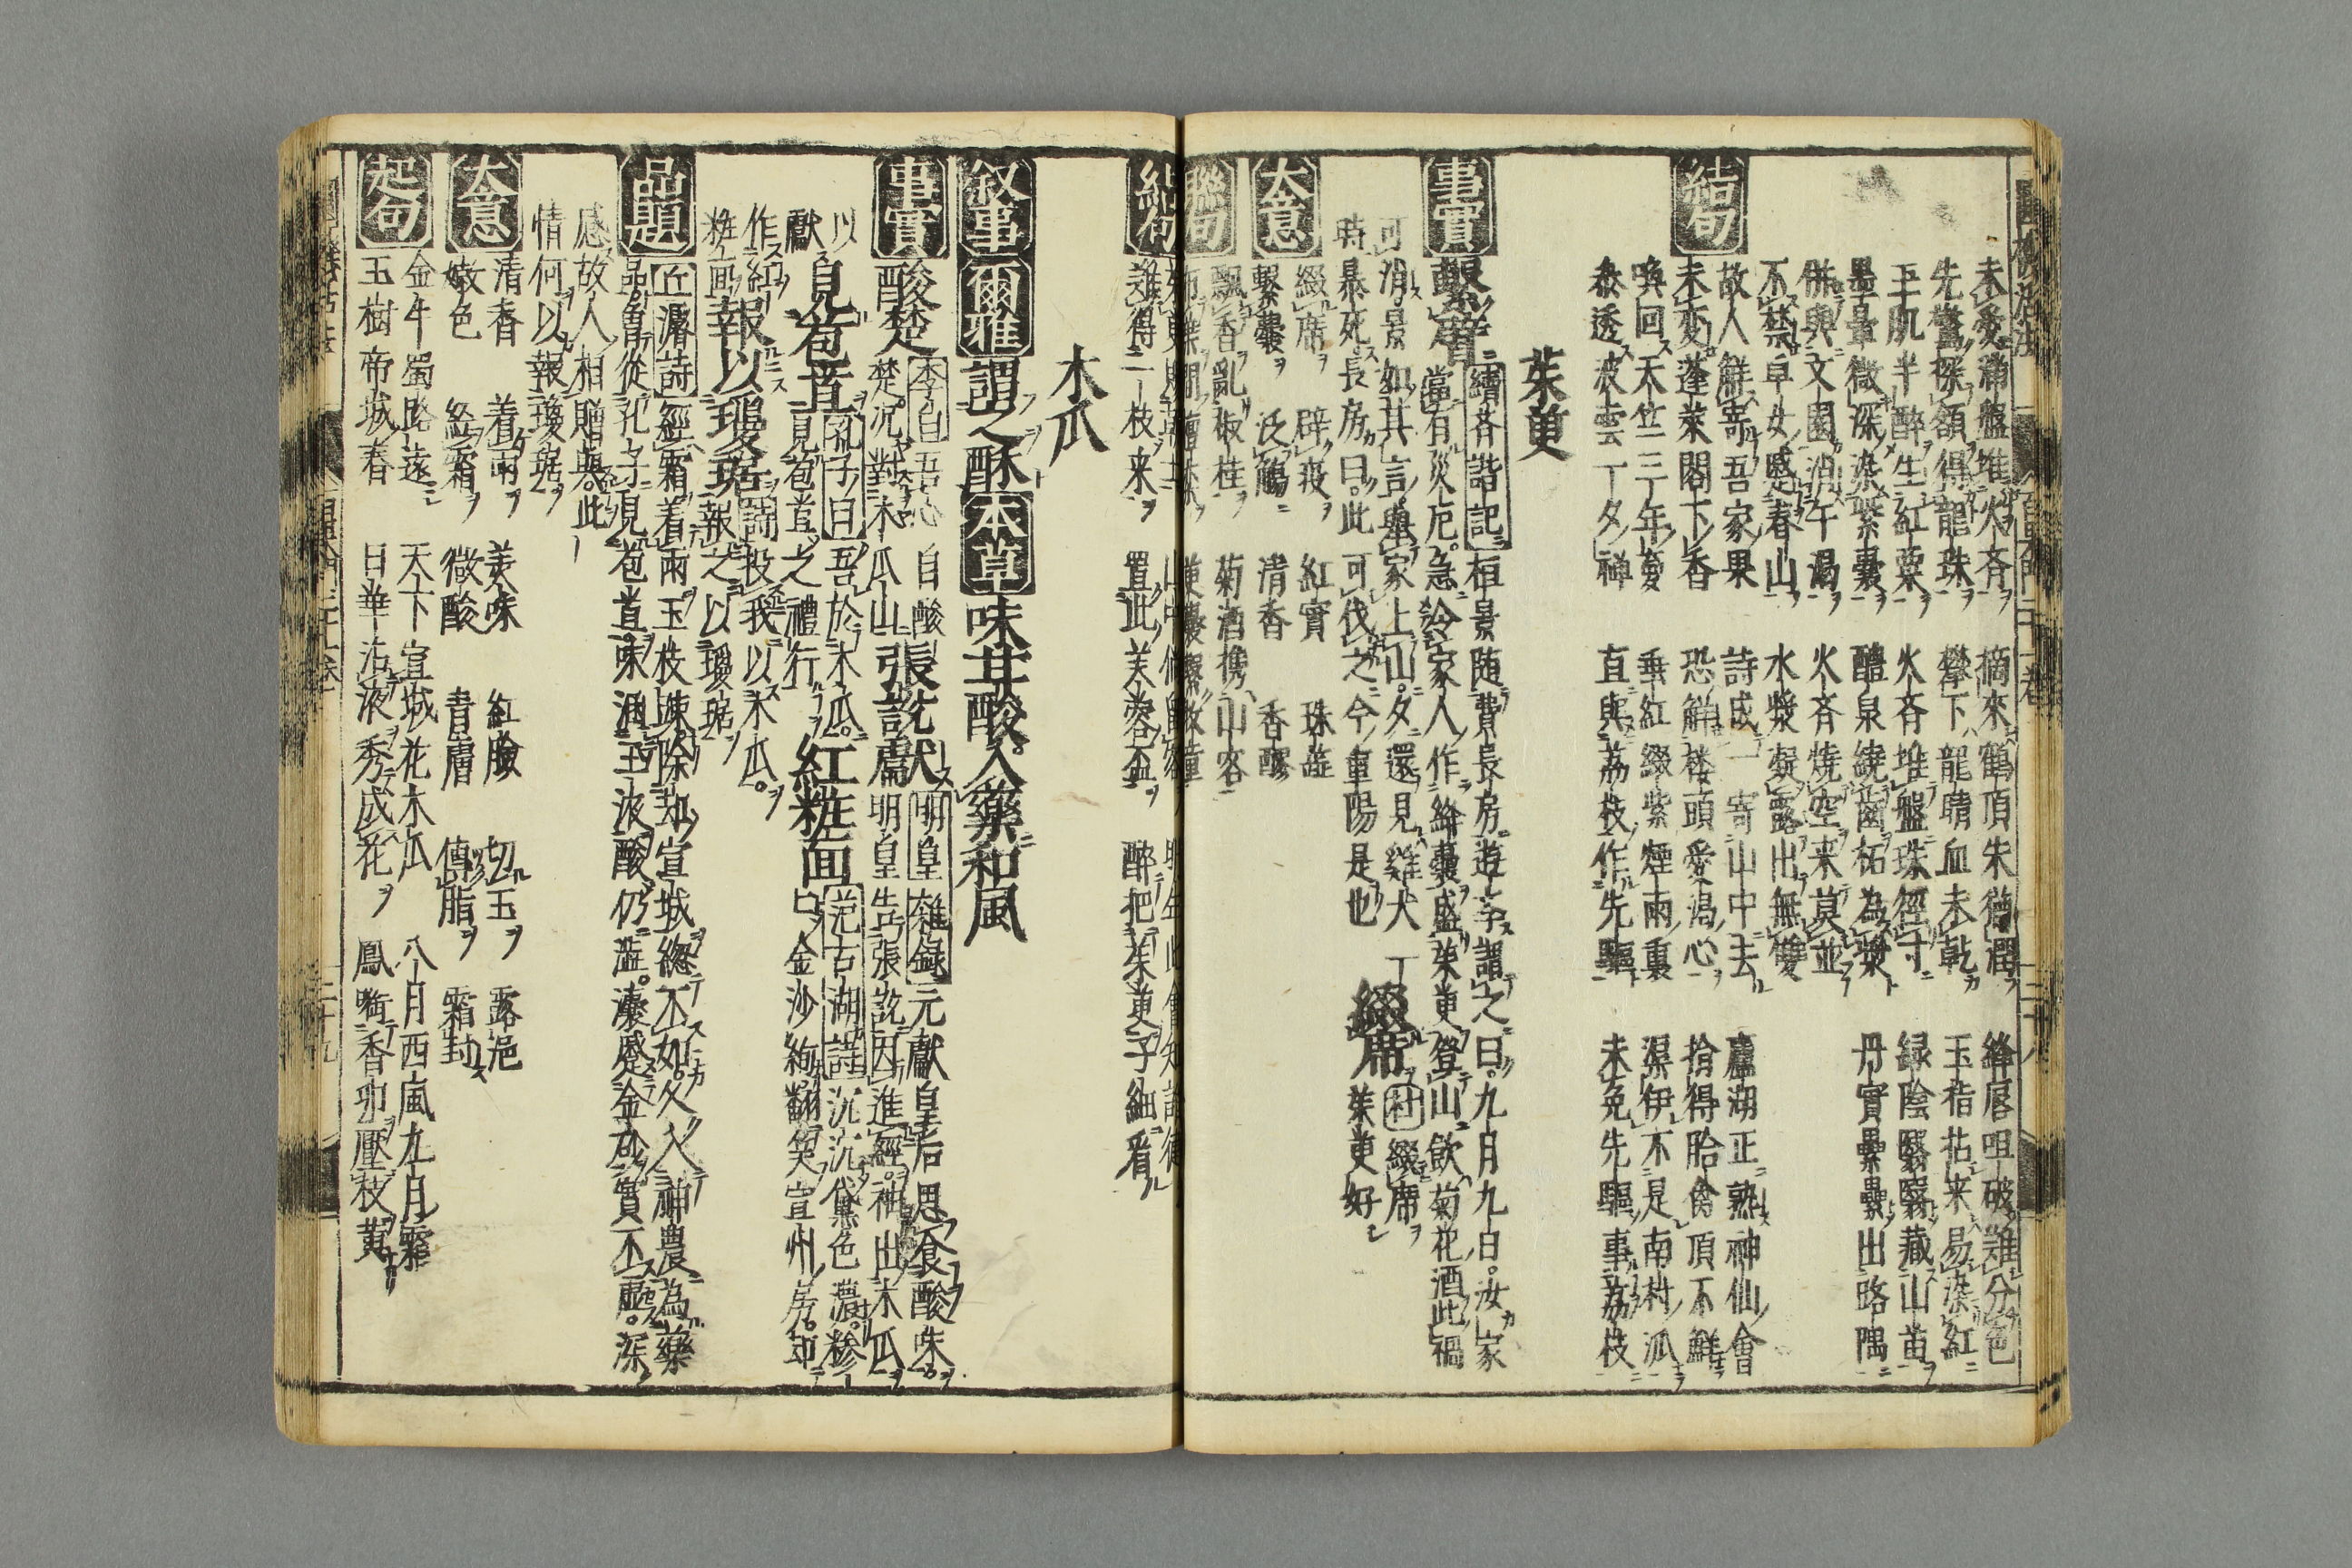 未愛滿盤堆火齊 摘來鶴頂朱猶潤 絳唇咀破難分色
先驚探頷得龍珠 攀下龍睛血未乾 玉指拈来易染紅
玉肌半醉生紅粟 火齊堆盤珠徑寸 緑陰翳翳藏山苗
墨暈微深染紫囊 醴泉繞齒柘為漿 丹實纍纍出路隅
併與文園消午渇 火齊燒空来莫並
不禁卓女慼春山 水漿凝露出無雙
故人鮮寄吾家果 詩成一寄山中去 廬湖正熟神仙會
未変蓬萊閣下香 恐鮮楼頭愛渇心 拾得胎禽頂不鮮
喚回天竺三年夏 垂紅綴紫煙雨裏 渠伊不是南村派
泰透波雲一夕禅 直與荔枝作先驅 未免先驅事荔枝
結句
茱萸
事實 繫臂 續斉諧記 桓景随費長房遊学謂之曰九月九日汝家
當有災厄急冷家人作絳囊盛茱萸登山飲菊花酒此禍
可消景如其言舉家上山夕還見雞犬一
時暴死長房曰此可伐之今重陽是也 綴席 杜 綴席茱萸好
大意 綴席 辟疫 紅實 珠蕋
繫囊 泛觴 清香 香醪
聯句 飄香亂椒桂 菊酒携山客
結句
誰得一枝来 置此芙蓉盃 醉把茱萸子細看
木瓜
叙事 爾雅 謂之酥 本草 味甘酸入藥和風
事實 酸楚 李白 吾心自酸
楚况對木瓜山 張説献 明皇雜録 元獻皇后思食酸味
明皇告張説因進經袖出木瓜
以献 見苞苴 孔子曰 吾於木瓜
見苞苴之禮行 紅粧面 范古湖詩 沉沉黛色濃糝
口金沙絢翻笑宣州房却
作紅粧面 報以瓊琚 詩 投我以木瓜
報之以瓊琚
品題 丘濬詩 經霜着雨玉枝踈除却宣城總不如久入神農為藥
品曽從孔子見苞苴味涵玉液酸仍澁瀼蹙金砂實不麤深
感故人相贈與此一
情何以報瓊琚
大意 清香 着雨 美味 紅臉 切玉 露浥
嫩色 經霜 微酸 青膚 傳脂 霜封
起句 金牛蜀路遠 天下宣城花木瓜 八月西風九月霜
玉樹帝城春 日華沾液秀成花 鳳啣香卵壓枝黄